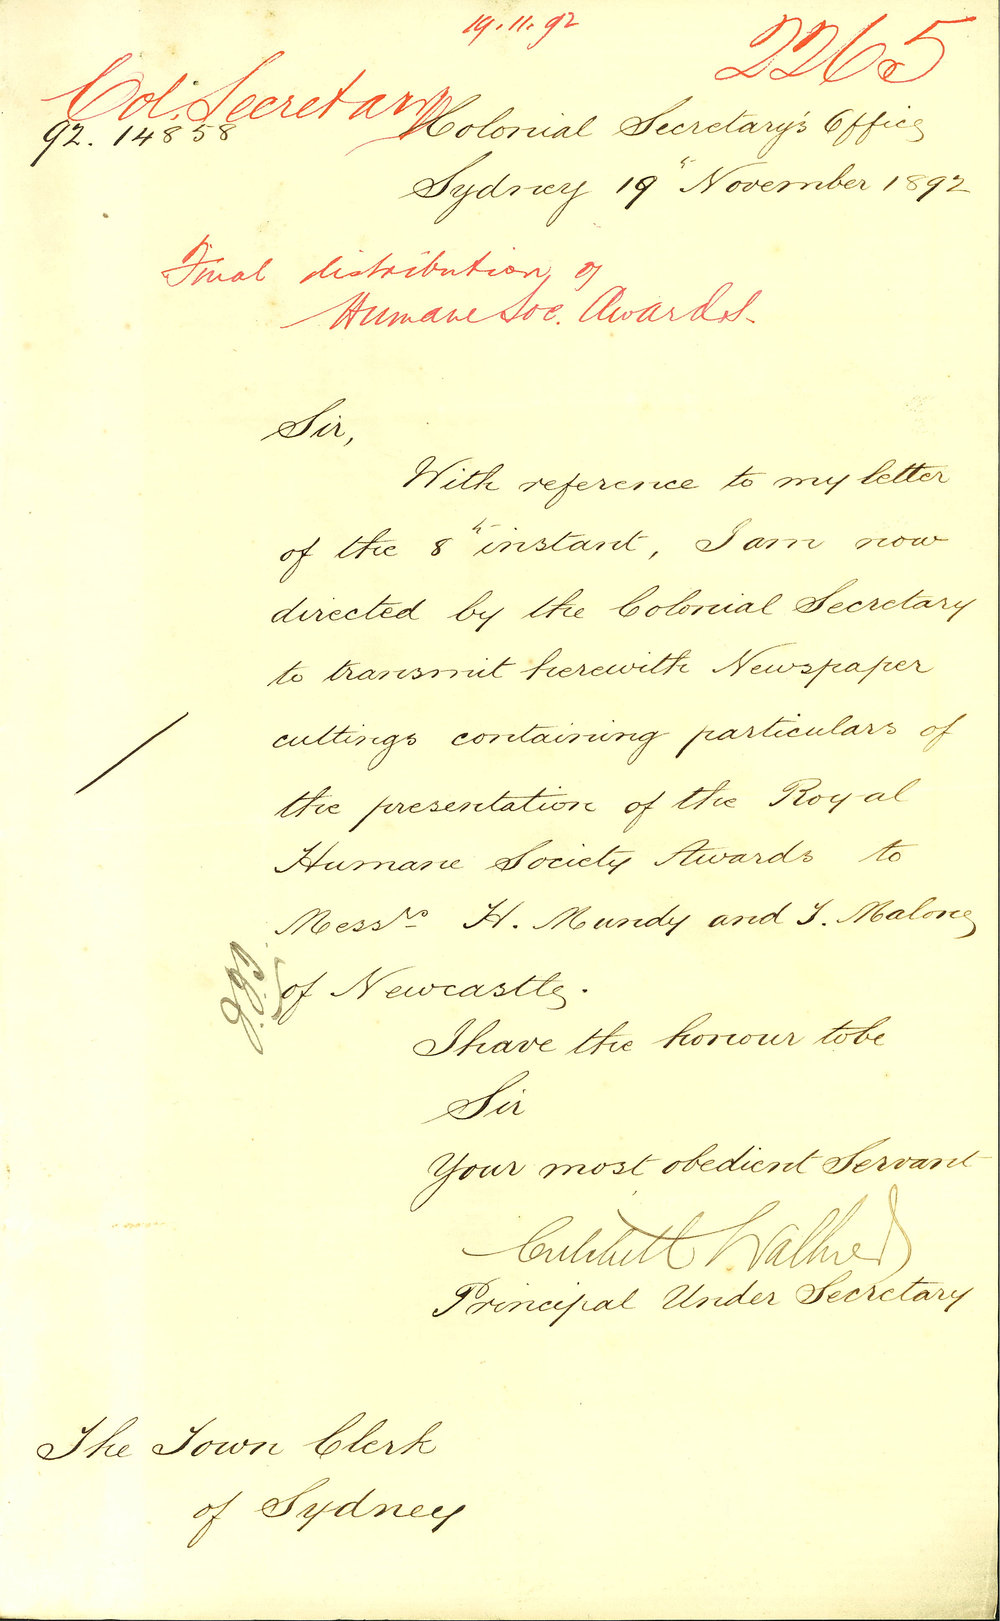 19.11.92
2265
Col. Secretary
92. 14858
Colonial Secretary's Office
Sydney 19th November 1892
Final distribution of
Humane Soc. Awards.
Sir,
With reference to my letter
of the 8th instant, I am now
directed by the Colonial Secretary
to transmit herewith Newspaper
cuttings containing particulars of
the presentation of the Royal
Humane Society Awards to
Messrs H. Mundy and T. Malone
of Newcastle.
I have the honour to be
Sir
Your most obedient Servant
Critchett Walker
Principal Under Secretary
The Town Clerk
of Sydney